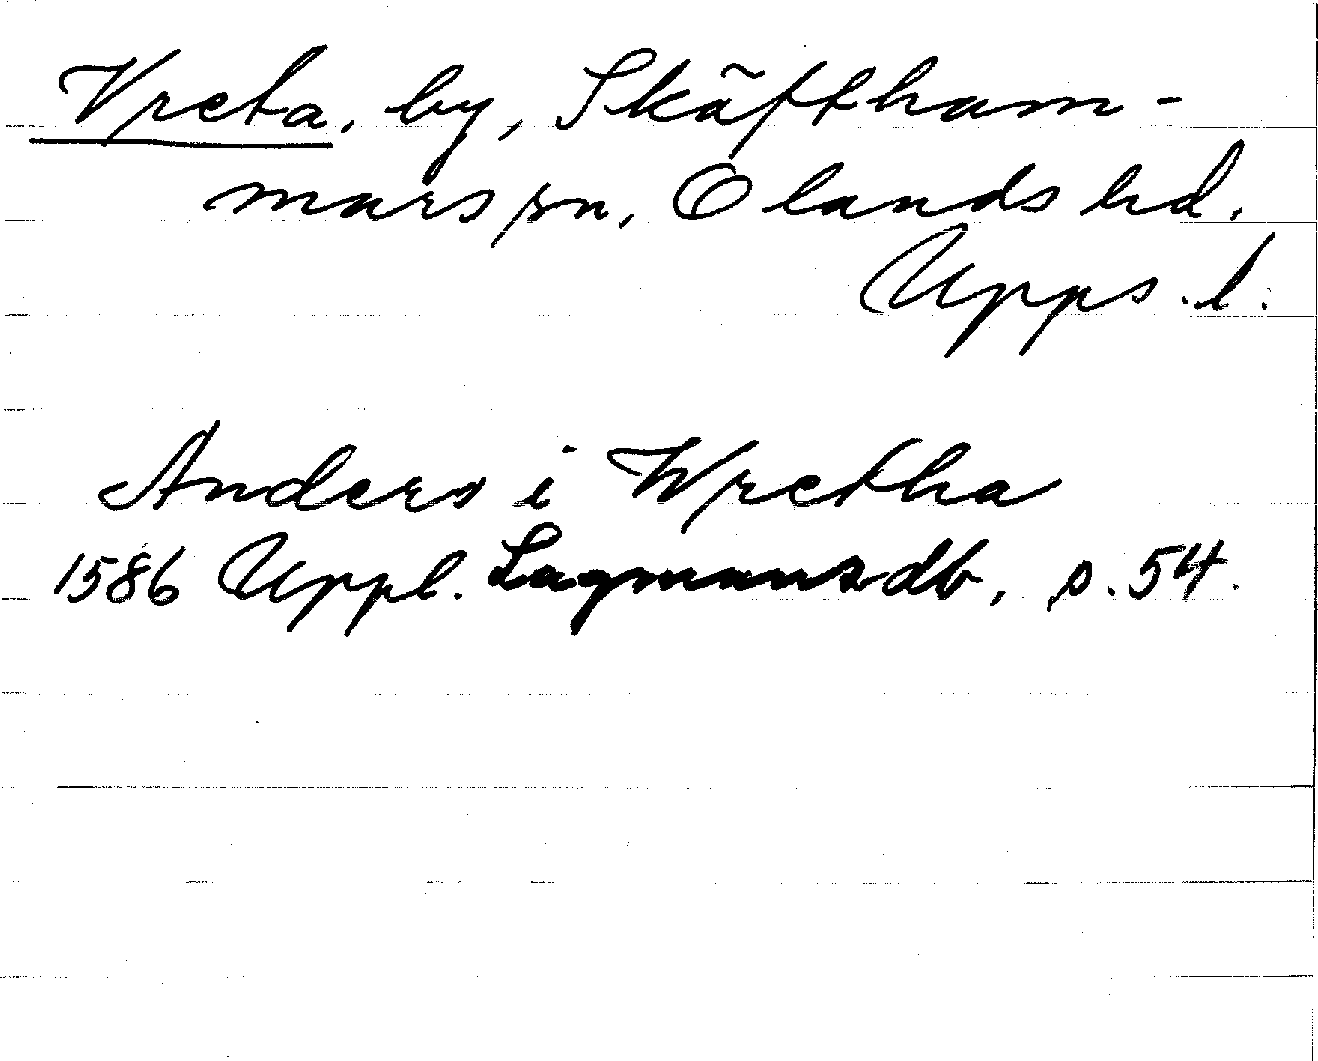 Vreta, by, Skäftham-
mars sn, Olands hd.
Upps. l.
Anders i Wretha
1586 Uppl. Lagmansdb, s. 54.